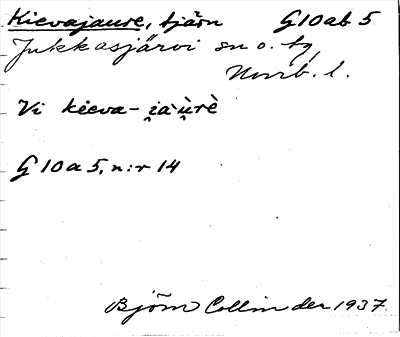 Kievajaure, tjärn G10ab 5
Jukkasjärvi sn o. tg,
Norrb. l.
Vi kieva- i̯a·ù̯rè
G 10 a 5, n:r 14
Björn Collinder 1937.